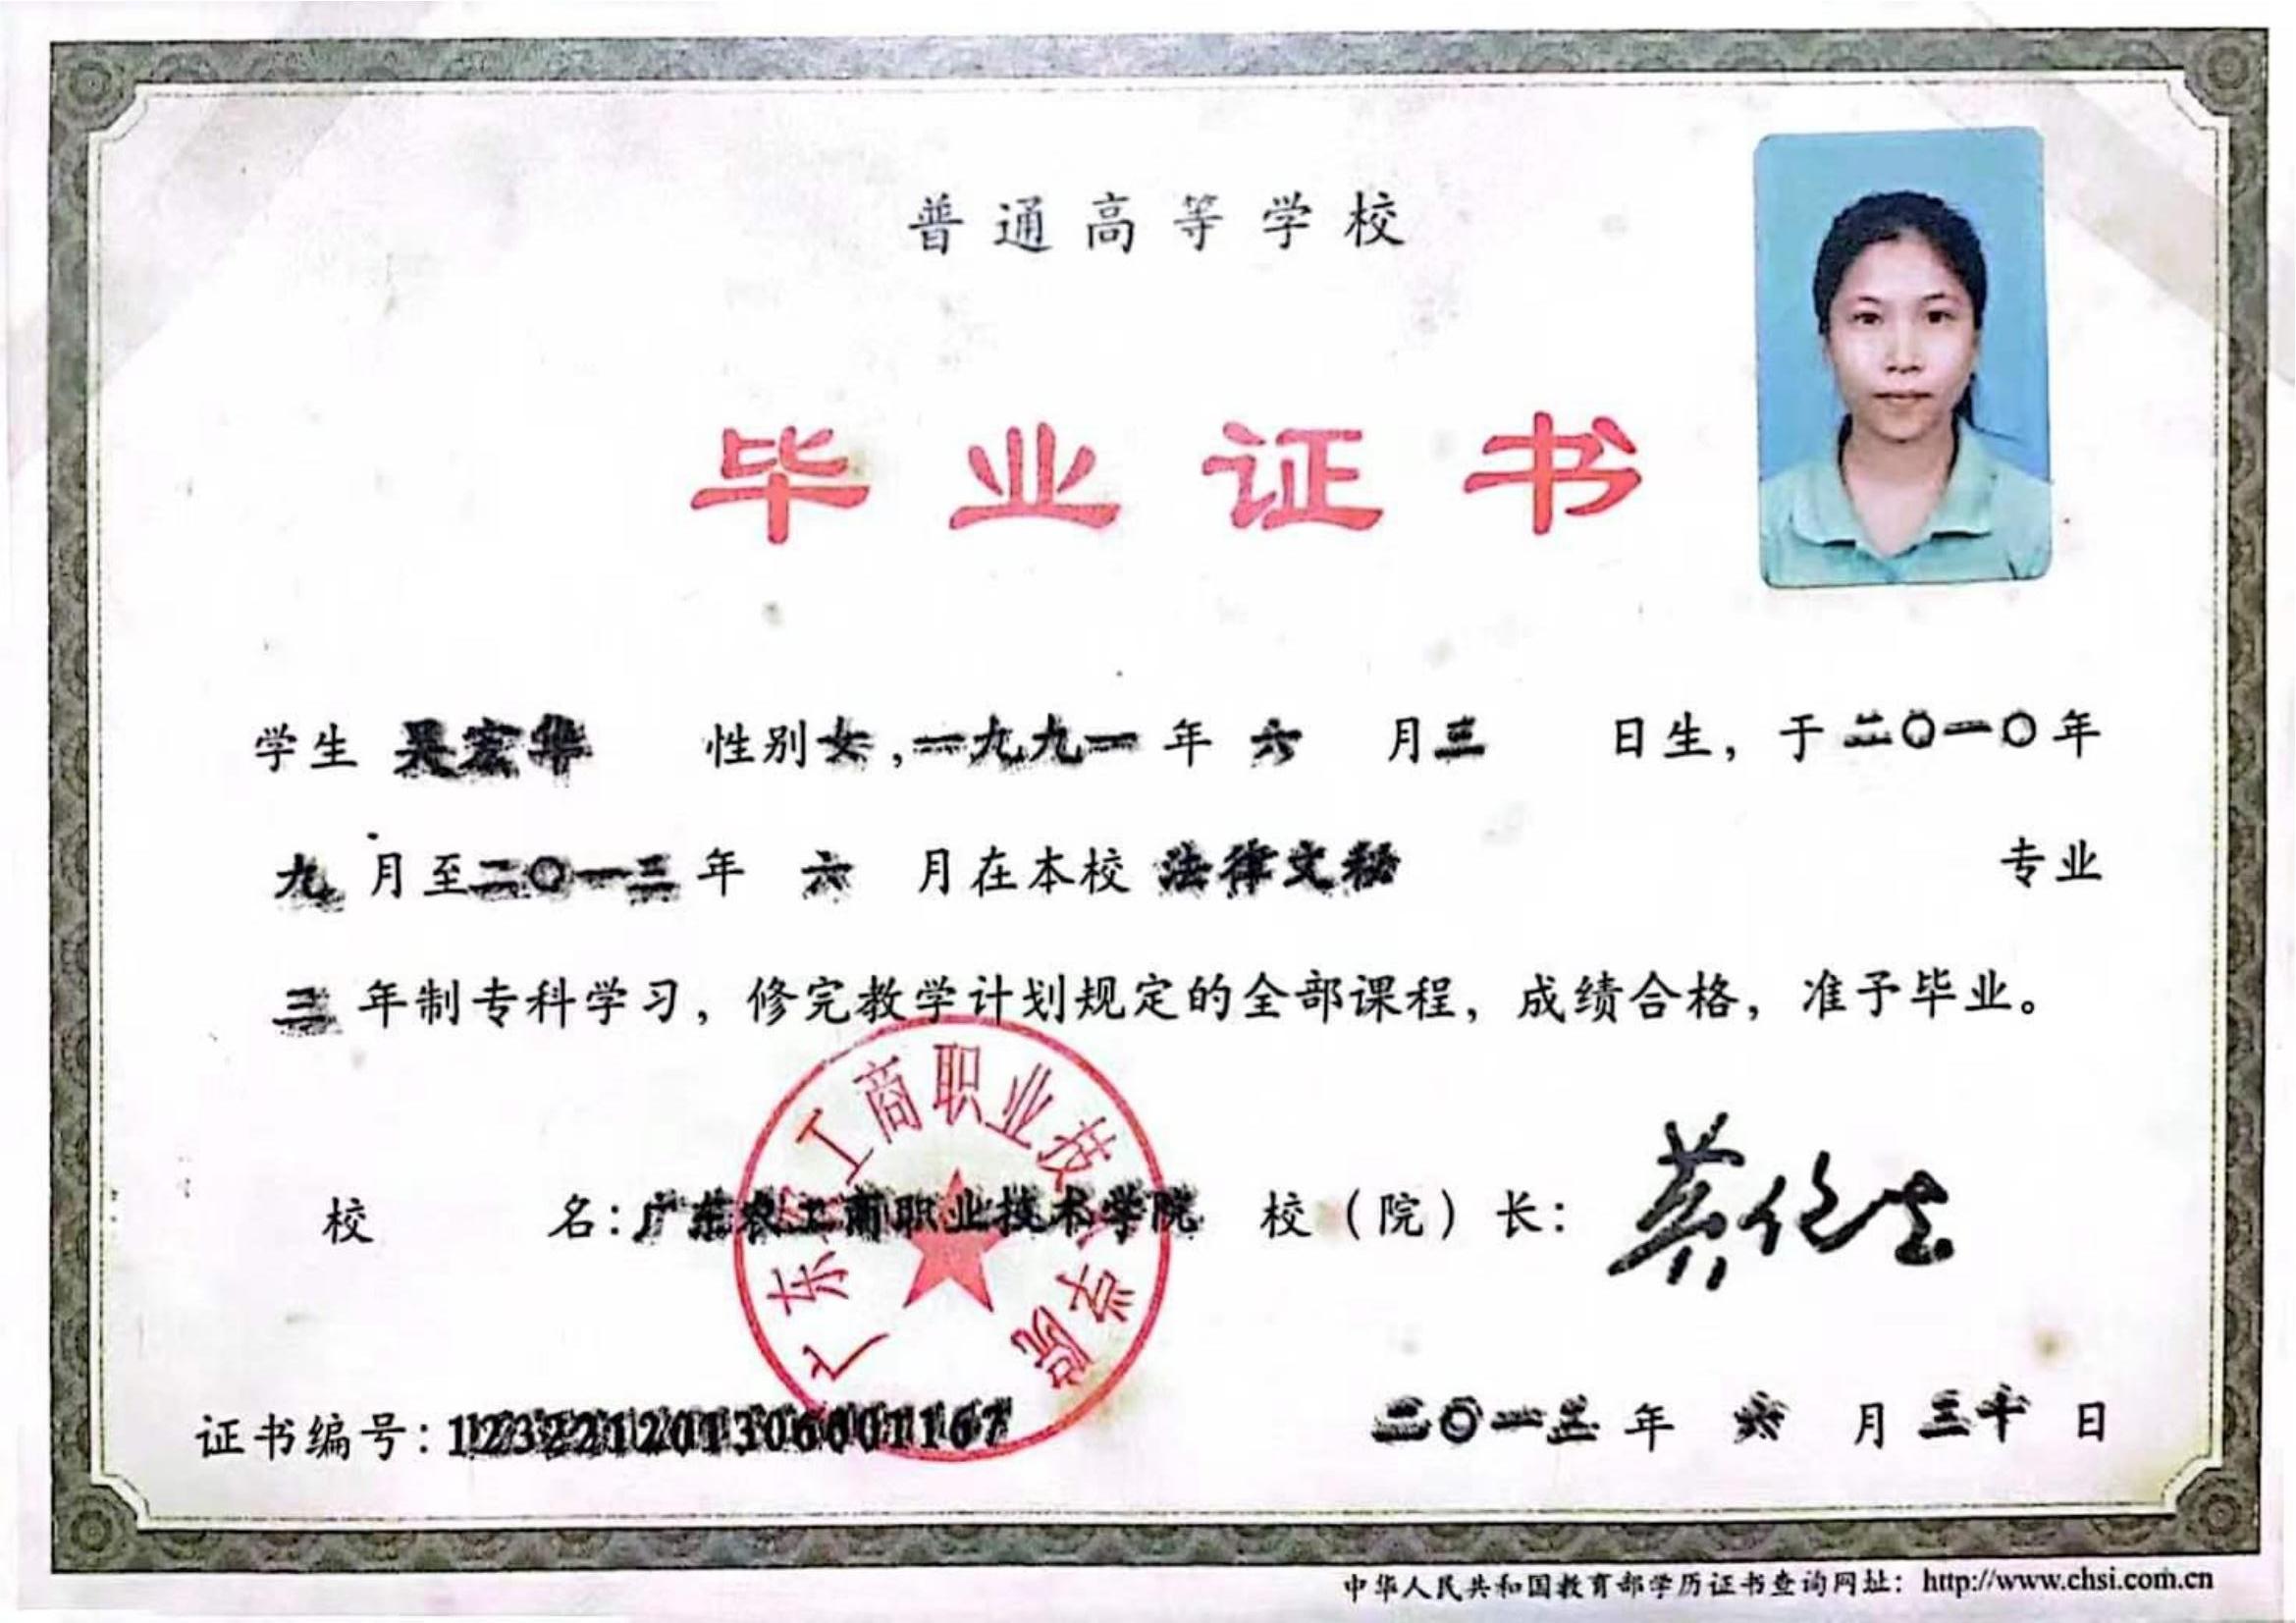 普通高等学校
毕业证书
学生 吴宏华 性别女,一九九一年 六 月三 日生，于二〇一〇年
九月至二〇一三年 六 月在本校 法律文秘 专业
三年制专科学习，修完教学计划规定的全部课程，成绩合格，准予毕业。
广东农工商职业技术学院
校 名：广东农工商职业技术学院 校（院）长：
证书编号：123221201306001167 二〇一三年 六 月三十日
中华人民共和国教育部学历证书查询网址：http://www.chsi.com.cn